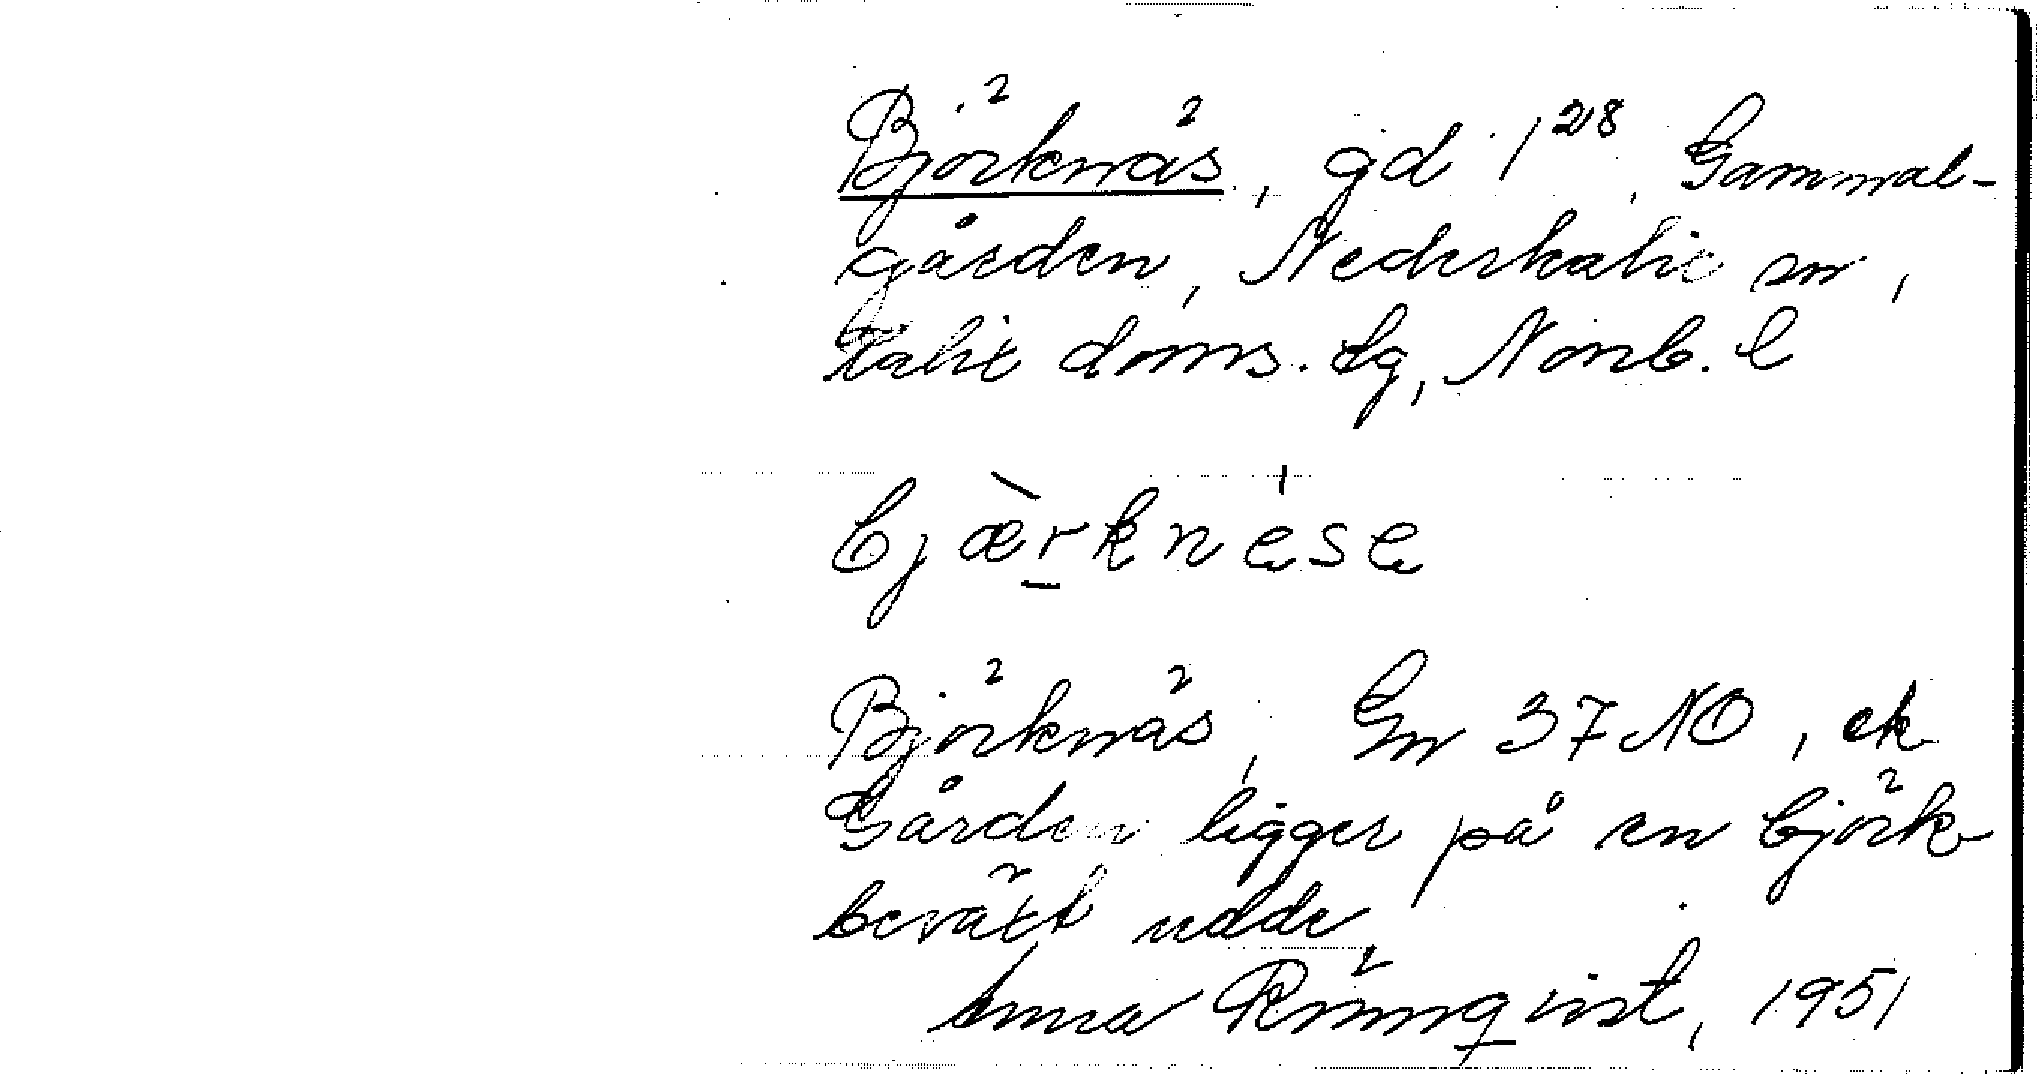 Björknäs, gd 1²⁸, Gammal-
gården, Nederkalix sn,
Kalix doms. tg, Norrb. l
bjæ̀rknése
Björknäs, Gm 37 NO, ek
Gården ligger på en björk-
beväxt udde.
Anna Rönnqvist, 1951